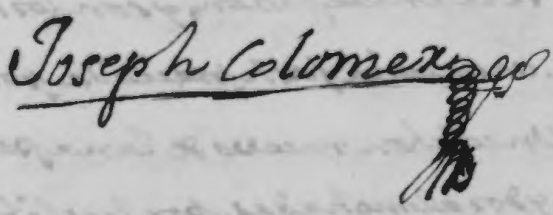 Joseph Colomex